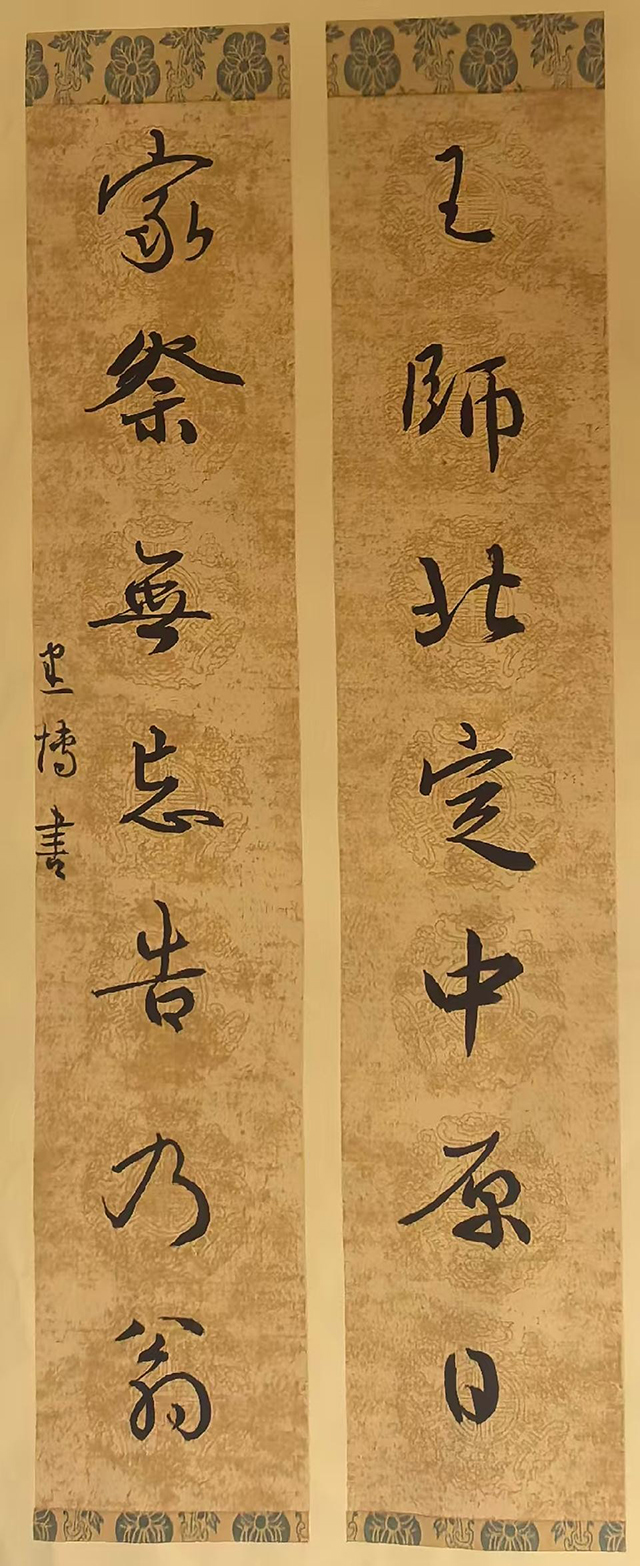 王師北定中原日
家祭無忘告乃翁
博書